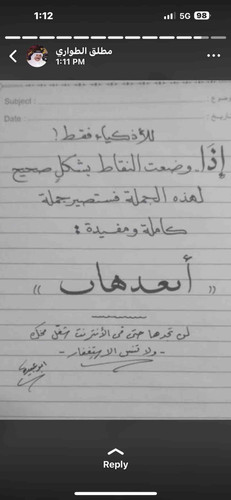 1:12
5G 98
مطلق الطواري
1:11 PM
Subject :
Date :
للأذكياء فقط !
إذا وضعت النقاط بشكل صحيح
لهذه الجملة فستصير جملة
كاملة ومفيدة :
« أبعدهاب »
لن تجدها حتى في الأنترنت شغل مخك
- ولا تنس الاستغفار -
Reply